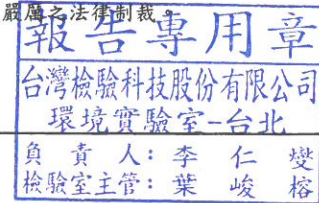 嚴厲之法律制裁。
報告專用章
台灣檢驗科技股份有限公司
環境實驗室-台北
負責人：李仁燮
檢驗室主管：葉峻榕